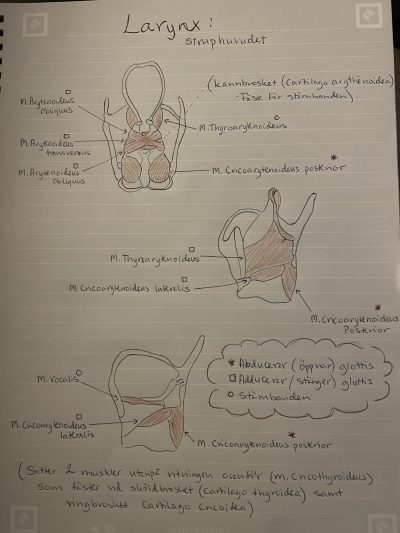 Larynx:
struphuvudet
(kannbrosket (Cartilago arythenoidea)
Fäste för stämbanden)
M. Arytenoideus
obliquus
M. Thyroarytenoideus
M. Arytenoideus
transversus
M. Arytenoideus
Obliquus
M. Cricoarytenoideus posterior *
M. Thyroarytenoideus
M. Cricoarytenoideus lateralis
M. Cricoarytenoideus *
Posterior
* Abducerar (öppnar) glottis
□ Adducerar (stänger) glottis
○ Stämbanden
M. Vocalis
M. Cricoarytenoideus
lateralis
M. Cricoarytenoideus posterior *
(Sitter 2 muskler utanpå ritningen ovanför (m. Cricothyroideus)
Som fäster vid sköldbrosket (Cartilago thyroidea) samt
ringbrosket Cartilago Cricoidea).